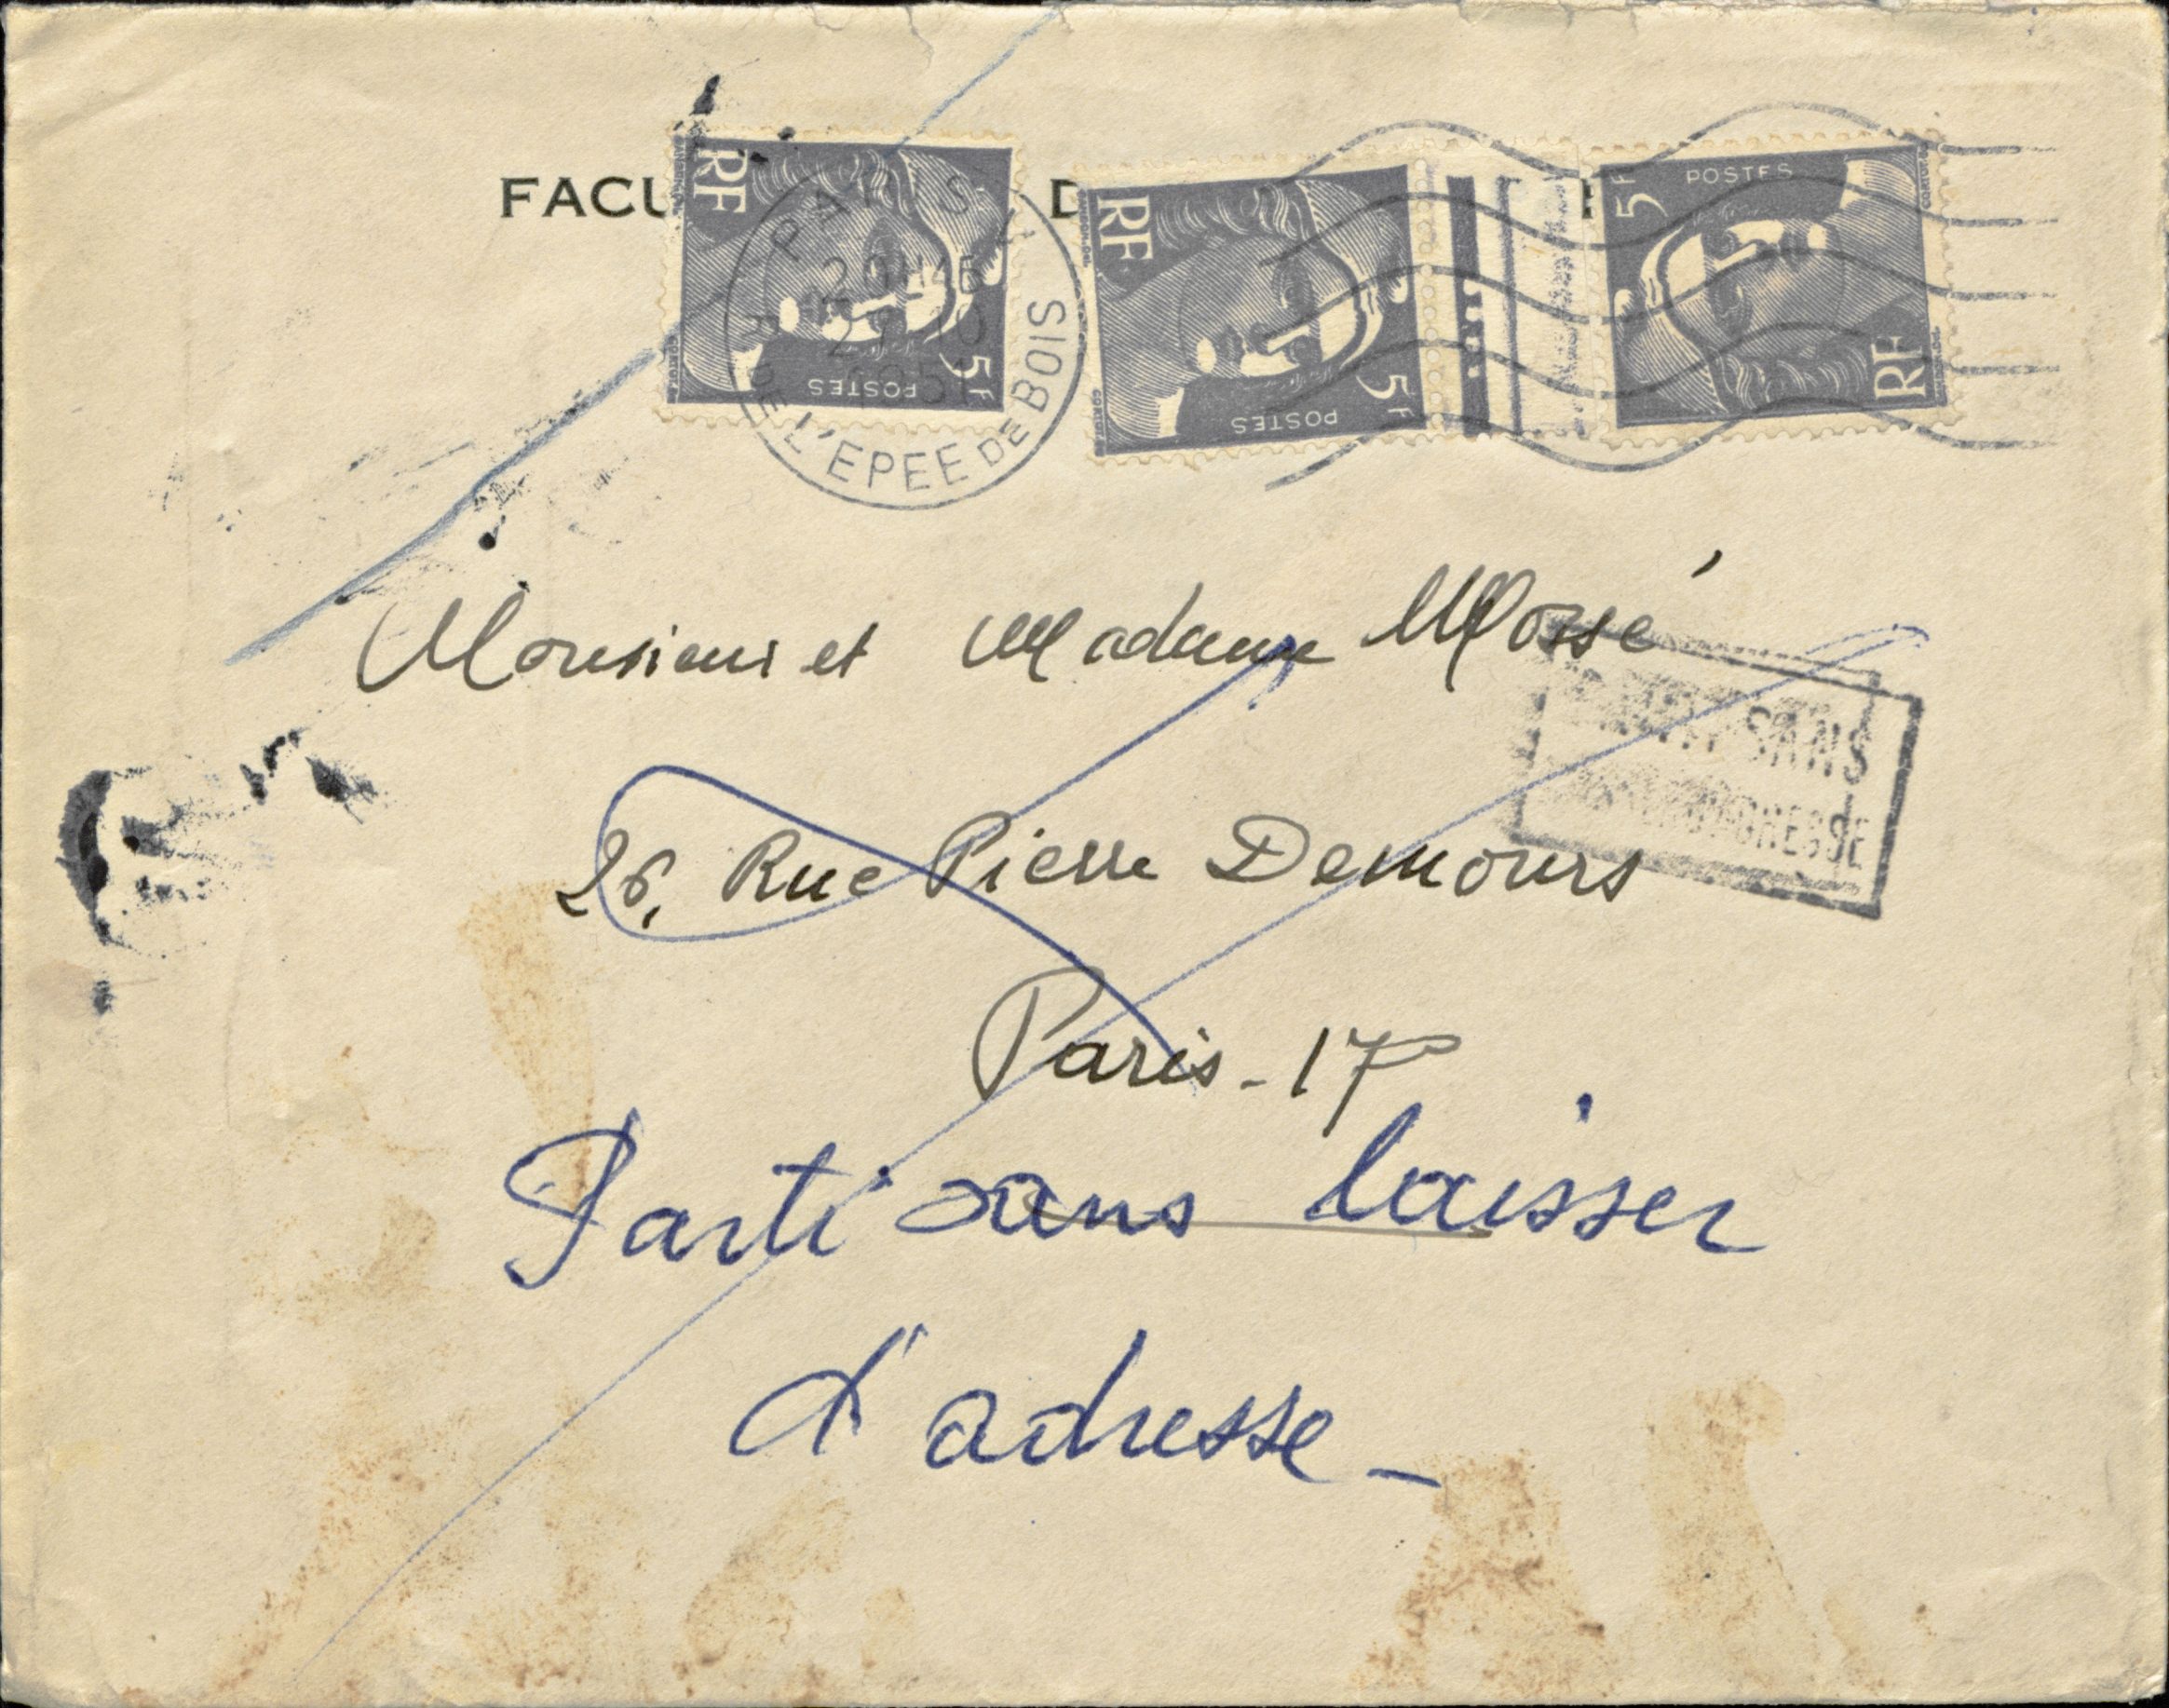 FACU
RF
POSTES
5F
RF
POSTES
5F
POSTES
5F
RF
PARIS V
R. DE L'EPEE DE BOIS
Monsieur et Madame Mossé
26, Rue Pierre Demours
Paris - 17
SANS
ADRESSE
Parti sans laisser
d'adresse -